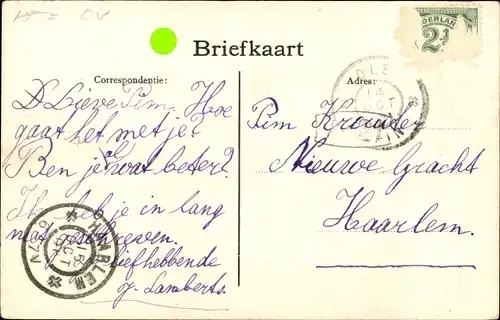 Briefkaart
Correspondentie:
Adres:
DERLAN
2½
D Lieve Pim. Hoe
gaat het met je?
Ben je al wat beter?
Ik heb je in lang
niet geschreven.
Liefhebbende
J. Lamberts.
Pim
Nieuwe Gracht
Haarlem.
14
OCT
HAARLEM
15
OCT